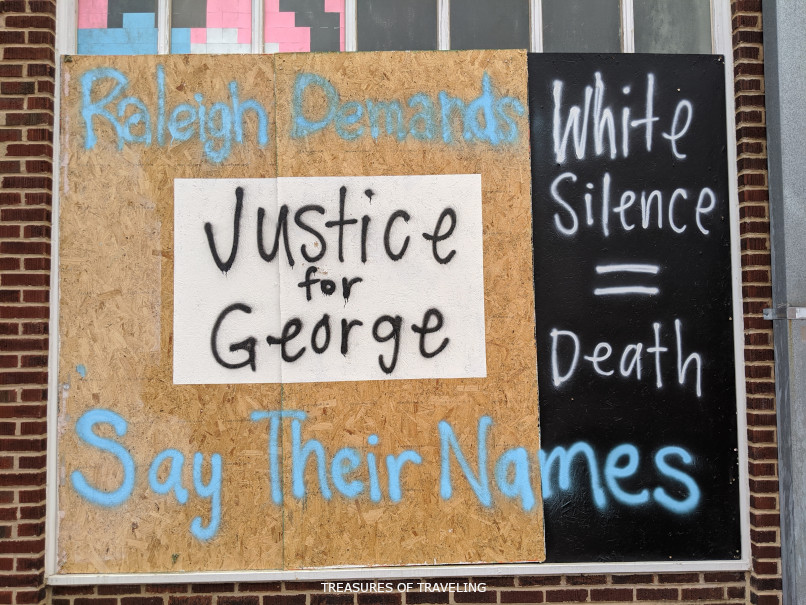 Raleigh Demands
Justice
for
George
White
Silence
=
Death
Say Their Names
TREASURES OF TRAVELING